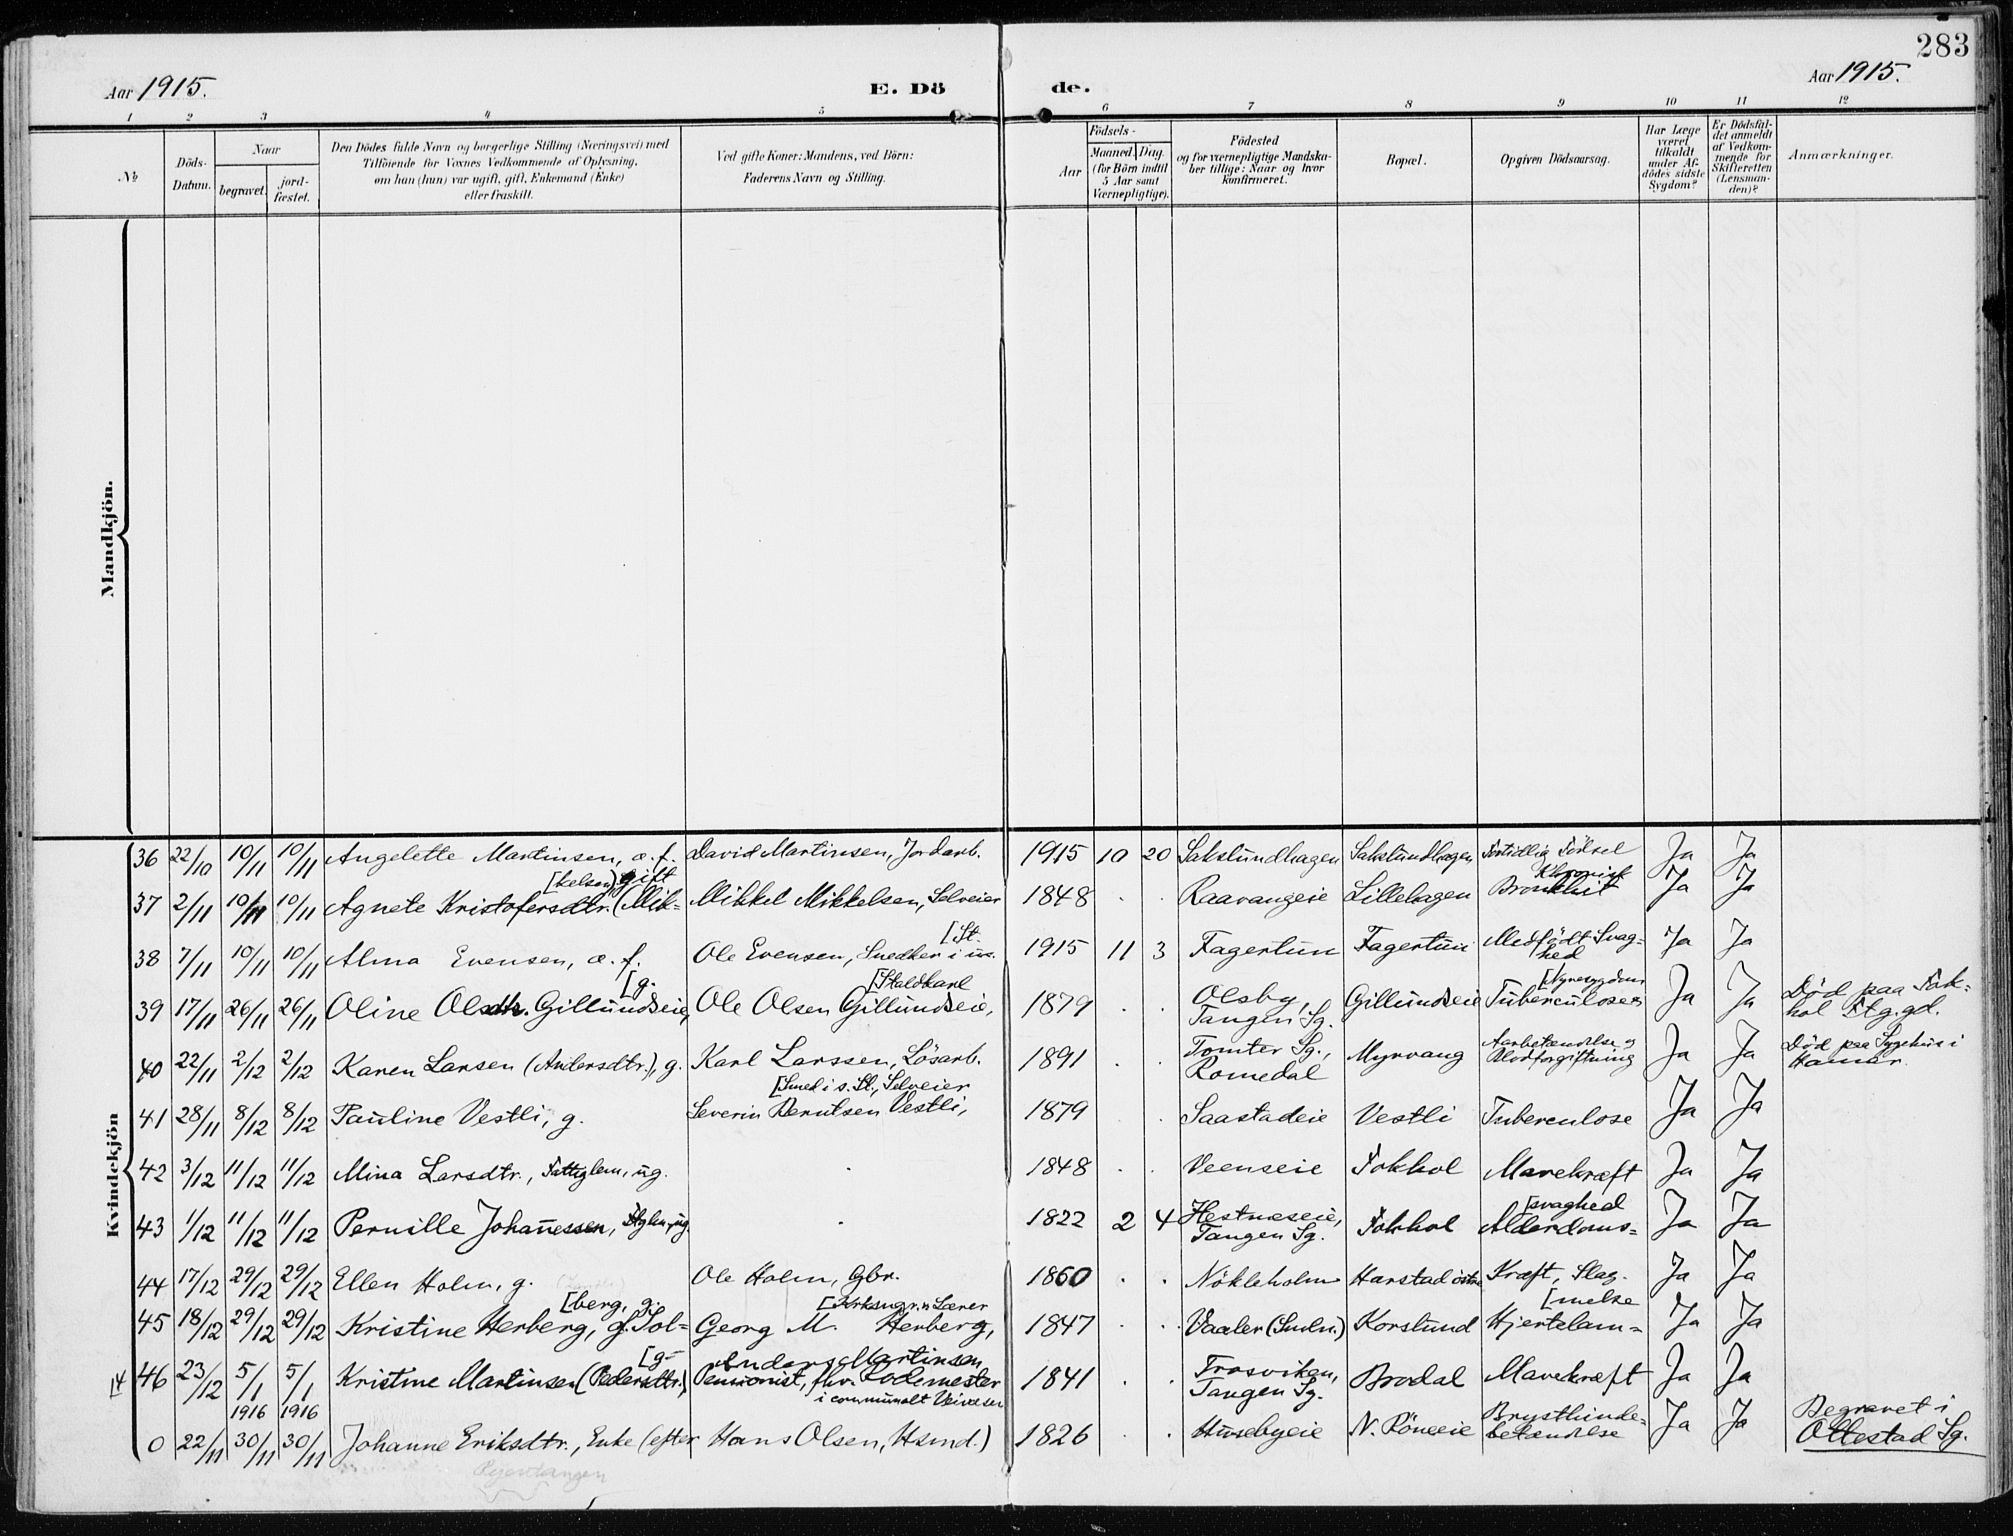 283
Aar 1915. E. Dö de. Aar 1915.
1 2 3 4 5 6 7 8 9 10 11 12
No
Döds-Datum.
Naar
begravet. jord-fæstet.
Den Dödes fulde Navn og borgerlige Stilling (Næringsvei) med
Tilföiende for Voxnes Vedkommende af Oplysning,
om han (hun) var ugift, gift, Enkemand (Enke)
eller fraskilt.
Ved gifte Koner: Mandens, ved Börn:
Faderens Navn og Stilling.
Födsels-
Aar
Maaned. Dag.
(for Börn indtil
5 Aar samt
Værnepligtige).
Födested
og for værnepligtige Mandska-
ber tillige: Naar og hvor
konfirmeret.
Bopæl.
Opgiven Dödsaarsag.
Har Læge
været
tilkaldt
under Af-
dödes sidste
Sygdom?
Er Dödsfal-
det anmeldt
af Vedkom-
mende for
Skifteretten
(Lensman-
den)?
Anmærkninger.
Mandkjön.
Kvindekjön
36 22/10 10/11 10/11 Angelette Martinsen, æ. f. David Martinsen, Jordarb. 1915 10 20 Sakslundhagen Sakslundhagen Fortidlig Födsel Ja Ja
[kelsen) gift Khronisk
37 2/11 10/11 10/11 Agnete Kristofersdtr. (Mik= Mikkel Mikkelsen, Selveier 1848 . . Raavangeie Lillehagen Bronkhit Ja Ja
[St.
38 7/11 10/11 10/11 Alma Evensen, æ. f. Ole Evensen, Snedker i 1915 11 3 Fagertun Fagertun Medfödt Svag=
hed Ja Ja
[g. [Staldkarl [Nyresygdom
39 17/11 26/11 26/11 Oline Olsdtr. Gillundseie, Ole Olsen Gillundseie, 1879 . . Olsby,
Tangen Sg. Gillundseie Tuberculose Ja Ja Död paa Fok=
hol Ftg.gd.
40 22/11 2/12 2/12 Karen Larsen (Andersdtr.), g. Karl Larssen, Lösarb. 1891 . . Tomter Sg.,
Romedal Myrvang Aarbetændelse og
Blodforgiftning Ja Ja Död paa Sygehus i
Hamar.
[Smed i s. St., Selveier
41 28/11 8/12 8/12 Pauline Vestli, g. Severin Berntsen Vestli, 1879 . . Saastadeie Vestli Tuberculose Ja Ja
42 3/12 11/12 11/12 Mina Larsdtr., Fattiglem, ug. . 1848 . . Veenseie Fokhol Mavekræft Ja Ja
[svaghed
43 1/12 11/12 11/12 Pernille Johannessen, Ftglem, ug. . 1822 2 4 Hestnæseie,
Tangen Sg. Fokhol Alderdoms= Ja Ja
44 17/12 29/12 29/12 Ellen Holm, g. Ole Holm, Gbr. 1860 . . Nökleholm Harstad östre Kræft, Slag. Ja Ja
[berg, g. [Kirksngr. & Lærer [melse
45 18/12 29/12 29/12 Kristine Herberg, f. Sol= Georg M. Herberg, 1847 . . Vaaler (Smln.) Korslund Hjertelam= Ja Ja
[g- Anders Martinsen
46 23/12 5/1 1916 5/1 1916 Kristine Martinsen (Pedersdtr.) Pensionist, fhv. Rodemester
i communalt Veivæsen 1841 . . Frosviken,
Tangen Sg. Brodal Mavekræft Ja Ja
0 22/11 30/11 30/11 Johanne Eriksdtr., Enke (efter Hans Olsen, Hsmd.) 1826 . . Husebyeie N. Röneeie Brysthinde=
betændelse Ja Ja Begravet i
Ottestad Sg.